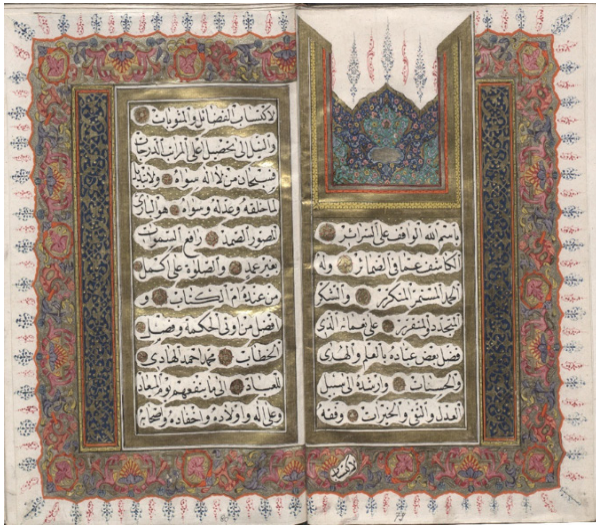 باسم الله الواقف على السرائر
الكاشف عما فى الضمائر وله
الحمد المستمر المتكرر والشكر
المتجدد على نعمائه الذى
فضل بعض عباده بالعلم والهدى
والحسنات وارشده الى سبيل
العدل والتقى والخيرات وفقه
لاكتساب
لاكتساب الفضائل والمثوبات
والنيل الى تحصيل على المراتب
فسبحان من لا اله سواه ولا
لما خلقه وعدله وسواه هو البارى
المصور الصمد رافع السموات
بغير عمد والصلوة على اكمل
من عنده ام الكتاب و
افضل من اوتى الحكمة وفصل
الخطاب محمد احمد الهادى
للعباد الى ما ينفعهم المعاد
وعلى اله واولاده واحفاده واصحابه